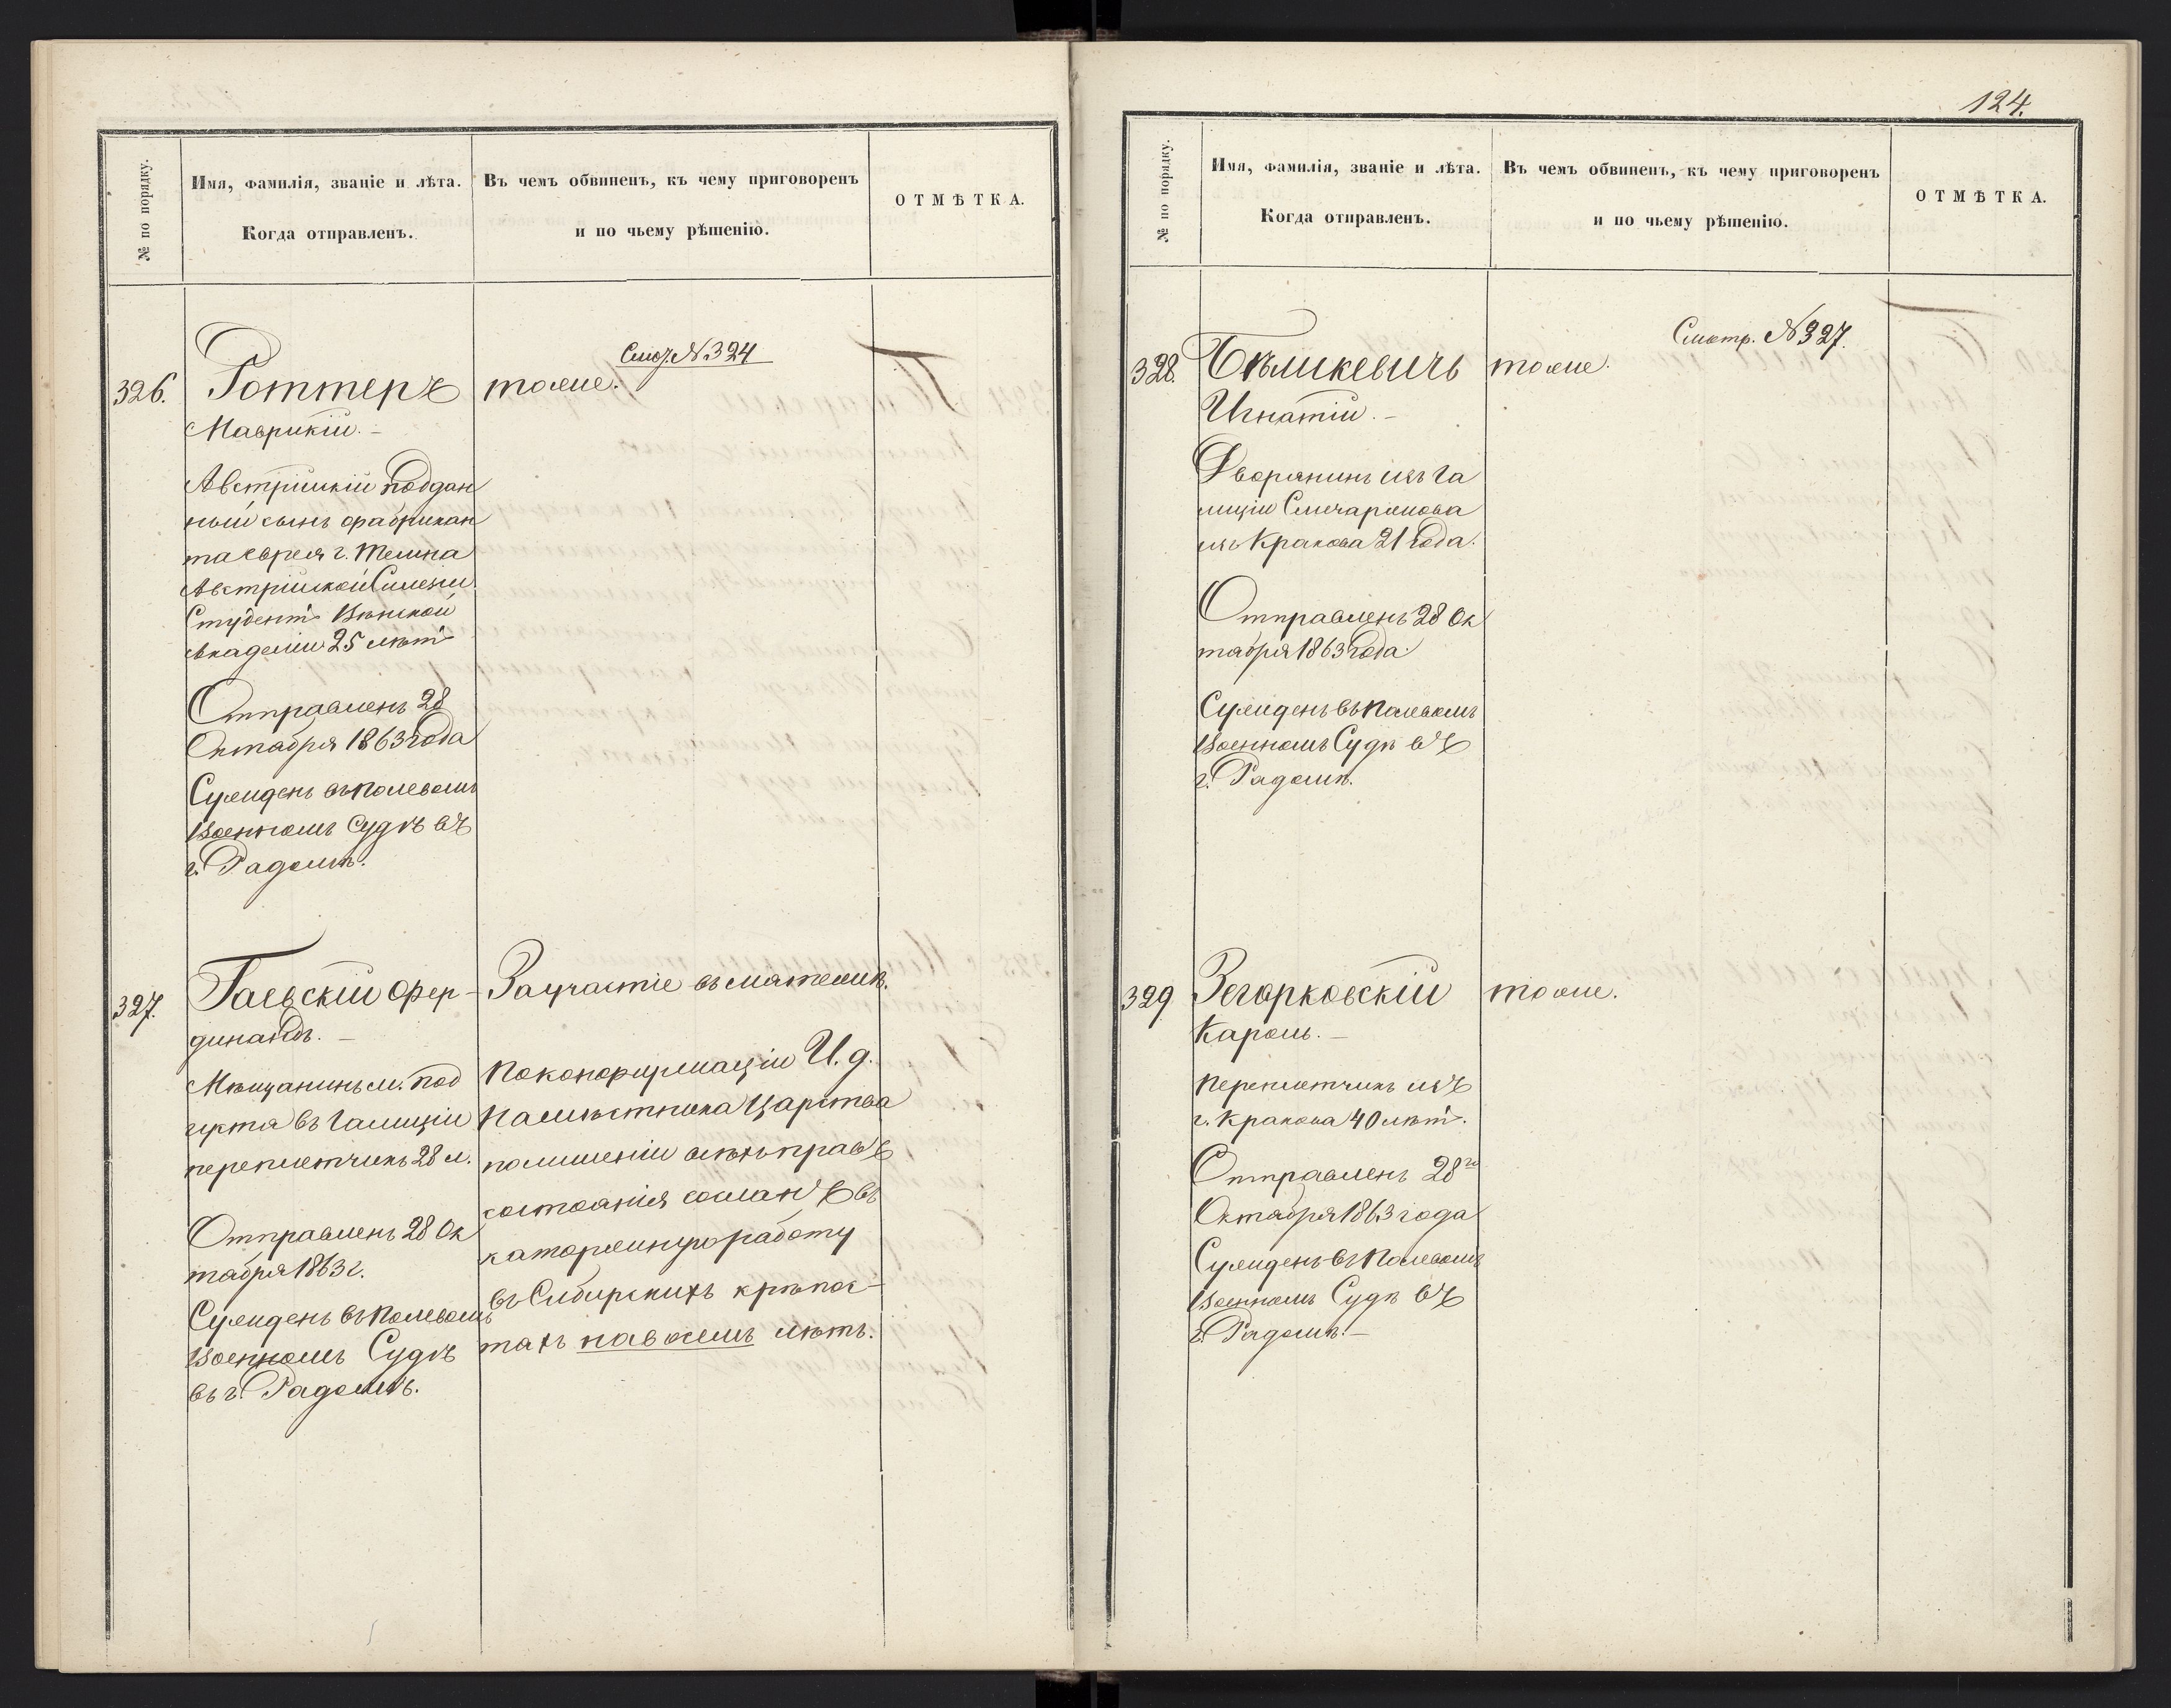 № по порядку.
Имя, фамилія, званіе и лѣта.
Когда отправленъ.
Въ чемъ обвиненъ, къ чему приговоренъ
и по чьему рѣшенію.
ОТМѢТКА.
Смот. №324
326.
Роттеръ
тоже.
Маврикій. –
Австрійскій поддан
ный сынъ фабрикан
та еврея г. Тешна
Австрійской Силезіи
Студентъ Вѣнской
Академіи 25 лѣтъ
Отправленъ 28
Октября 1863 года
Сужденъ въ полевомъ
Военномъ Судѣ въ
г. Радомѣ.
327.
Гаевскій Фер-
За участіе въ мятежѣ.
динандъ. –
Мѣщанинъ м. Под
гужа въ Галиціи
переплетчикъ 28 л.
Отправленъ 28 Ок
тября 1863 г.
Сужденъ въ Полевомъ
Военномъ Судѣ
въ г. Радомѣ.
По конфирмаціи И. д.
Намѣстника Царства
по лишеніи всѣхъ правъ
состоянія сосланъ въ
каторжную работу
въ Сибирскихъ крѣпос-
тяхъ на восемь лѣтъ.
124.
№ по порядку.
Имя, фамилія, званіе и лѣта.
Когда отправленъ.
Въ чемъ обвиненъ, къ чему приговоренъ
и по чьему рѣшенію.
ОТМѢТКА.
Смотр. №327.
328.
Бѣликевичъ
тоже.
Игнатій. –
Дворянинъ изъ Га
лиціи
изъ Кракова 21 года.
Отправленъ 28 Ок
тября 1863 года.
Сужденъ въ Полевомъ
Военномъ Судѣ въ
г. Радомѣ.
329
Згорковскій
тоже.
Кароль. –
Переплетчикъ изъ
г. Кракова 40 лѣтъ.
Отправленъ 28го
Октября 1863 года
Сужденъ въ Полевомъ
Военномъ Судѣ въ
г. Радомѣ. –